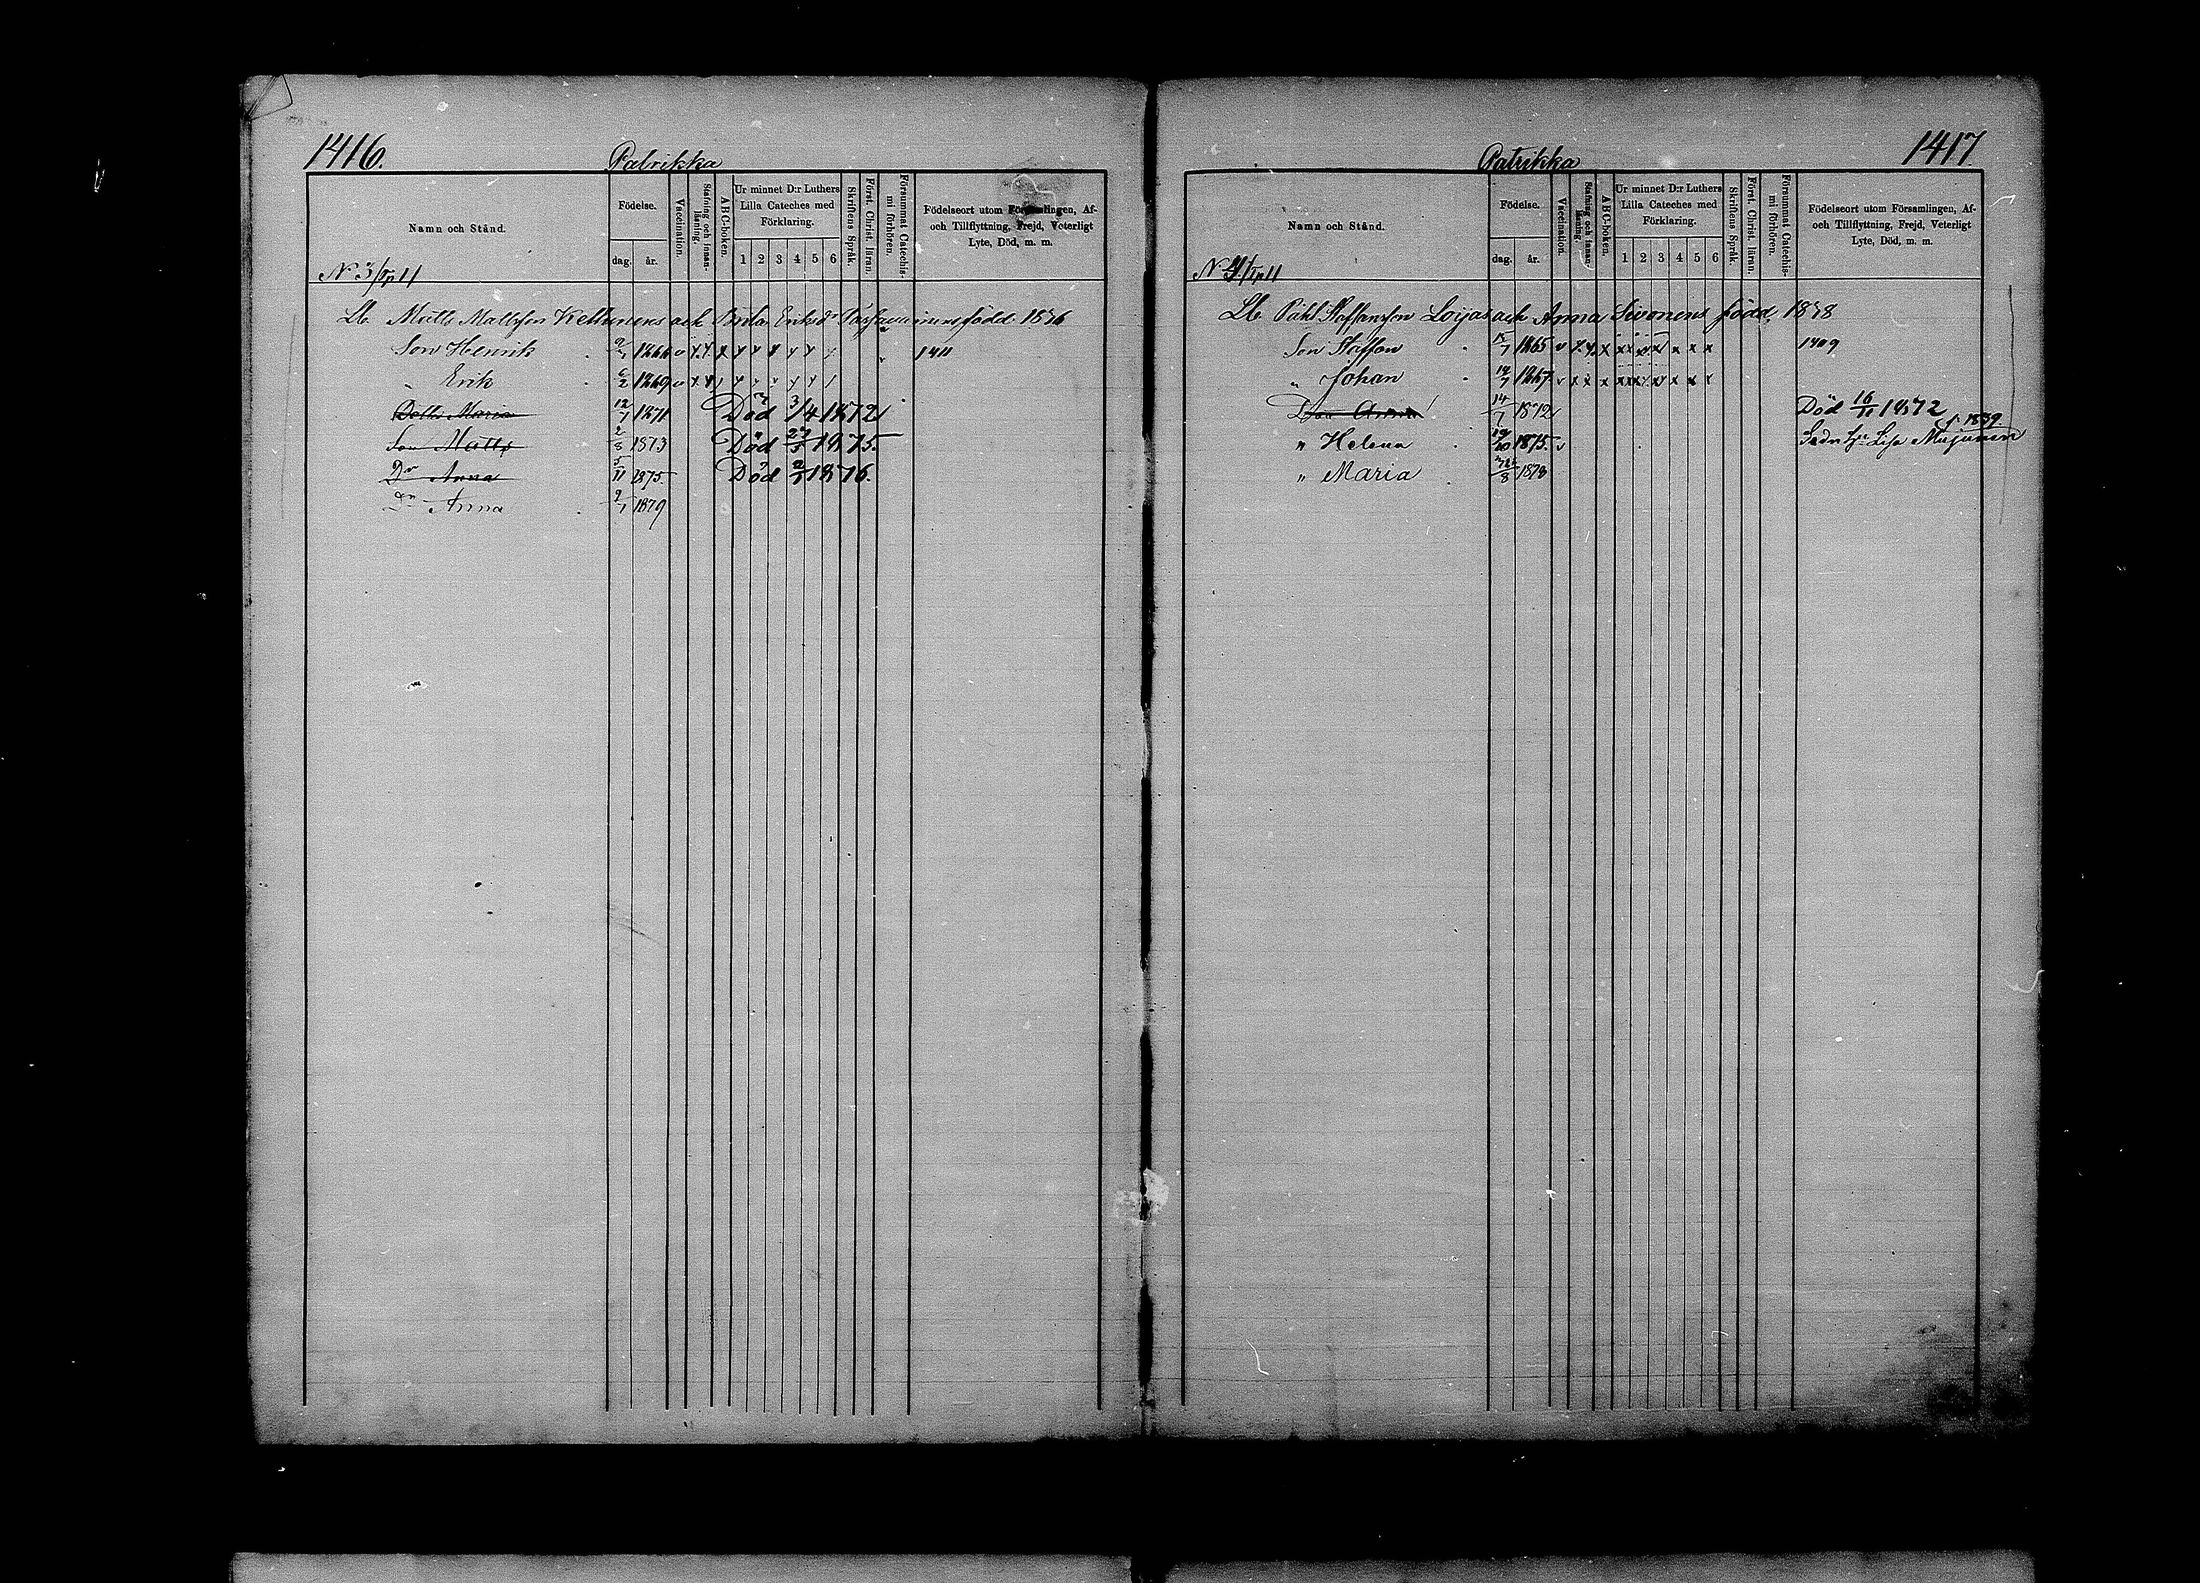 1416.
Patrikka
Namn och Stånd.
Födelse.
dag. år.
Vaccination.
Stafning och innanläsning.
ABC-boken.
Ur minnet D:r Luthers Lilla Cateches med Förklaring.
1 2 3 4 5 6
Skriftens Språk.
Först. Christ. läran.
Försummat Catechismi förhören.
Födelseort utom Församlingen, Af- och Tillflyttning, Frejd, Veterligt Lyte, Död, m. m.
N 3
Lb. Matts Mattsson Kettunens och Brita Eriksdr född 1836
Son Henrik 1866 1411
" Erik 1869
Dottr Maria 12/1 1871 Död 3/4 1872
Son Matts 2/8 1873 Död 1875
Dr Anna 5/11 1875 Död 1876.
Dr Anna 9/1 1879
Patrikka
1417
Namn och Stånd.
Födelse.
dag. år.
Vaccination.
Stafning och innanläsning.
ABC-boken.
Ur minnet D:r Luthers Lilla Cateches med Förklaring.
1 2 3 4 5 6
Skriftens Språk.
Först. Christ. läran.
Försummat Catechismi förhören.
Födelseort utom Församlingen, Af- och Tillflyttning, Frejd, Veterligt Lyte, Död, m. m.
N 4
Lb. Påhl Staffansson Loijas och Anna Sivonens född, 1838
Son Staffan 1865 1409
" Johan 1867
Anna 14/7 1872 Död 1872
" Helena 1875 Lisa f. 1839
" Maria 1878